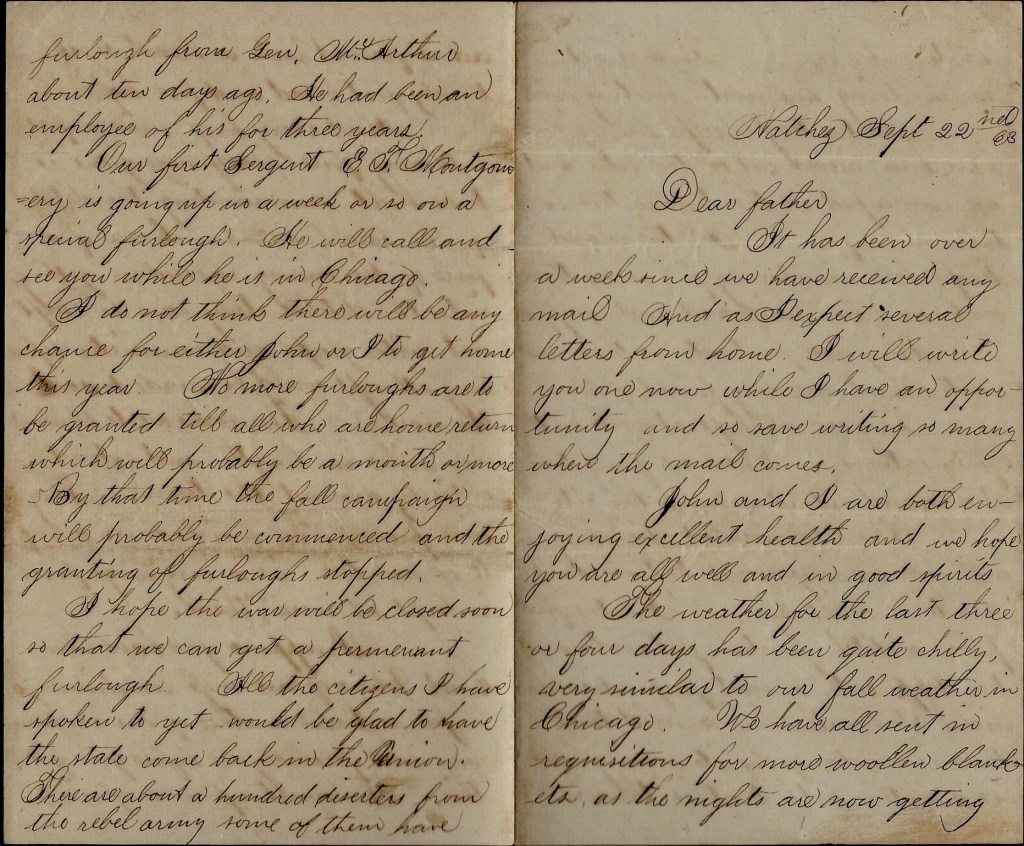 furlough from Gen, McArthur
about ten days ago. He had been an
employee of his for three years.
Our first Sergent E. F. Montgom
=ery is going up in a week or so on a
special furlough. He will call and
see you while he is in Chicago.
I do not think there will be any
chance for either John or I to get home
this year. No more furloughs are to
be granted till all who are home return
which will probably be a month or more
By that time the fall campaign
will probably be commenced and the
granting of furloughs stopped.
I hope the war will be closed soon
so that we can get a permenant
furlough All the citizens I have
spoken to yet would be glad to have
the state come back in the Union.
There are about a hundred diserters from
the rebel army some of them have
Natchez Sept 22nd 63
Dear father
It has been over
a week since we have received any
mail And as I expect several
letters from home. I will write
you one now while I have an oppor-
tunity and so save writing so many
when the mail comes.
John and I are both en-
joying excellent health and we hope
you are all well and in good spirits
The weather for the last three
or four days has been quite chilly,
very similar to our fall weather in
Chicago. We have all sent in
requisitions for more woollen blank-
ets, as the nights are now getting